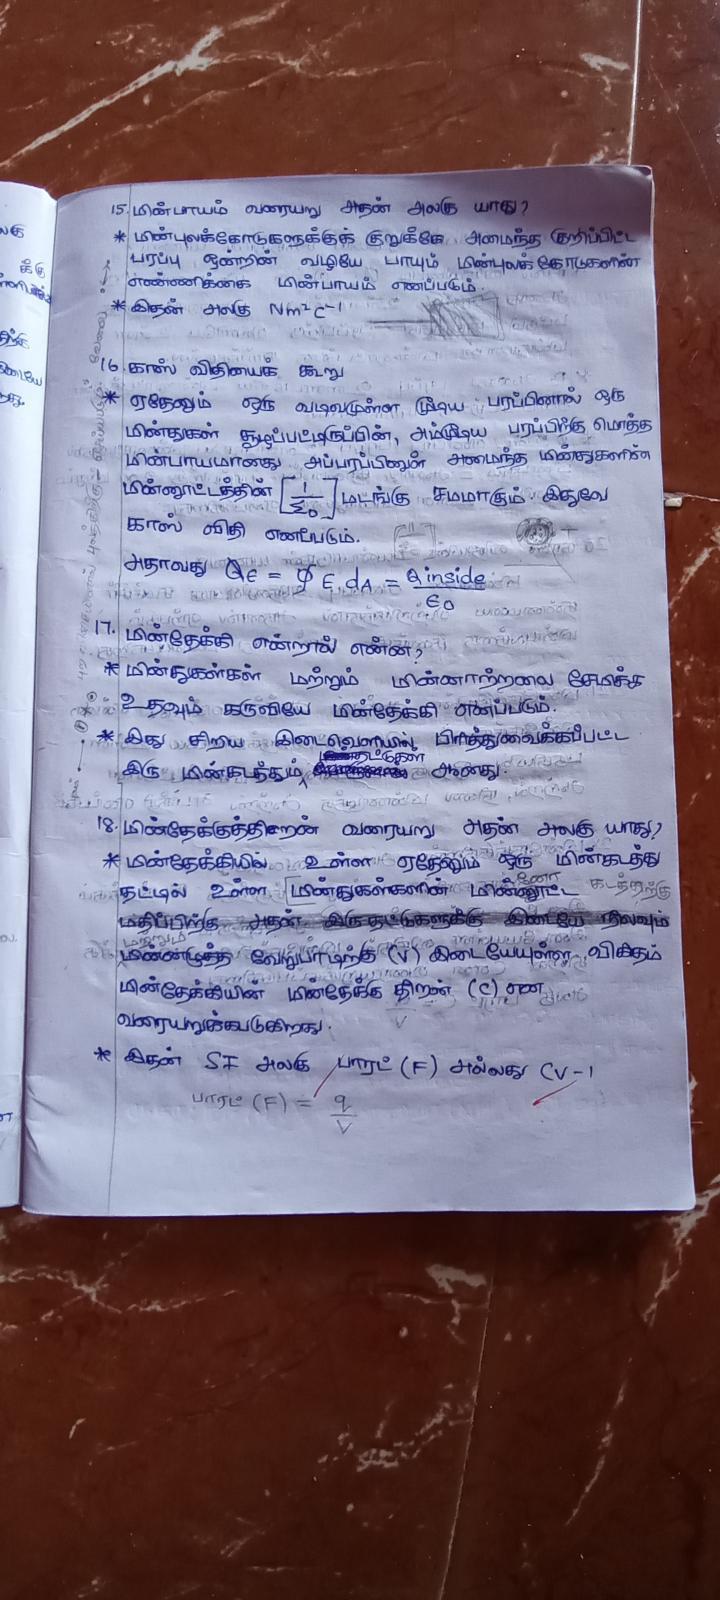 15. மின்பாயம் வரையறு அதன் அலகு யாது?
* மின்புலக்கோடுகளுக்குக் குறுக்கே அமைந்த குறிப்பிட்ட
பரப்பு ஒன்றின் வழியே பாயும் மின்புலக் கோடுகளின்
எண்ணிக்கை மின்பாயம் எனப்படும்.
* இதன் அலகு Nm²C⁻¹
16. காஸ் விதியைக் கூறு
* ஏதேனும் ஒரு வடிவமுள்ள மூடிய பரப்பினால் ஒரு
மின்துகள் சூழப்பட்டிருப்பின், அம்மூடிய பரப்பிற்கு மொத்த
மின்பாயமானது அப்பரப்பினுள் அமைந்த மின்துகளின்
மின்னூட்டத்தின் [1/ε₀] மடங்கு சமமாகும். இதுவே
காஸ் விதி எனப்படும்.
அதாவது ΦE = ∮ E. dA = Q inside / ε₀
17. மின்தேக்கி என்றால் என்ன?
* மின்துகள்கள் மற்றும் மின்னாற்றலை சேமிக்க
உதவும் கருவியே மின்தேக்கி எனப்படும்.
* இது சிறிய இடைவெளியில் பிரித்துவைக்கப்பட்ட
தட்டுகள்
இரு மின்கடத்தும் ஆனது.
18. மின்தேக்குத்திறன் வரையறு அதன் அலகு யாது?
* மின்தேக்கியில் உள்ள ஏதேனும் ஒரு மின்கடத்து
தட்டில் உள்ள [மின்துகள்களின் மின்னூட்ட
மதிப்பிற்கு அதன் இருதட்டுகளுக்கு இடையே நிலவும்
மின்னழுத்த வேறுபாடிற்கு (V) இடையேயுள்ள விகிதம்
மின்தேக்கியின் மின்தேக்கு திறன் (C) என
வரையறுக்கப்படுகிறது.
* இதன் SI அலகு பாரட் (F) அல்லது CV-1
பாரட் (F) = q/V